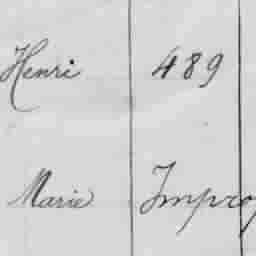 Henri 489
Marie Impro